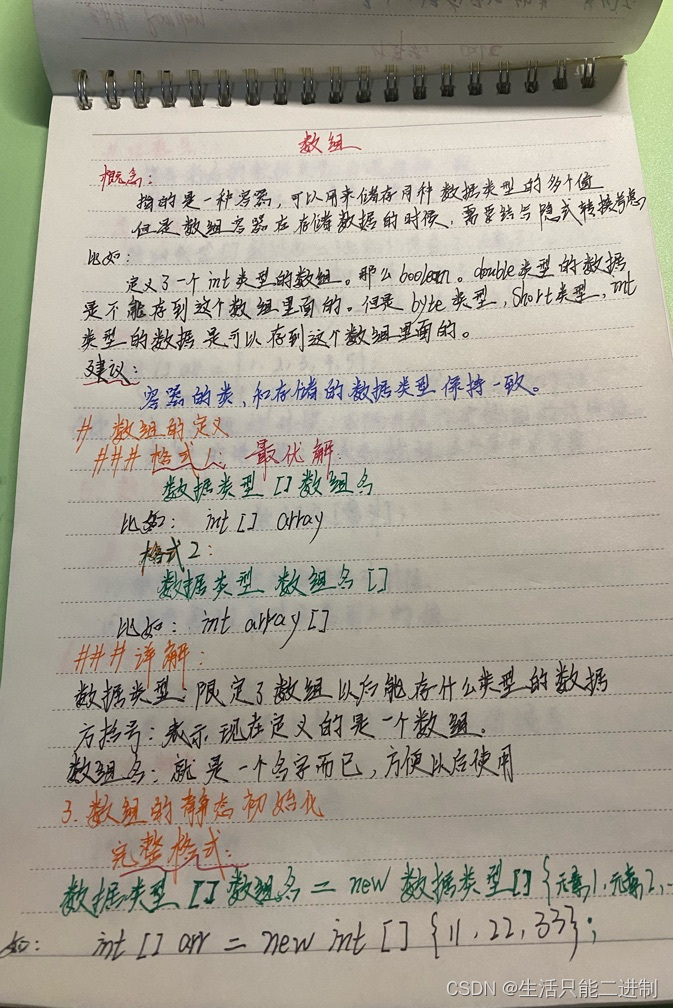 数组
概念:
指的是一种容器,可以用来储存同种数据类型的多个值
但是数组容器在存储数据的时候,需要结合隐式转换考虑
比如:
定义了一个int类型的数组。那么boolean。double类型的数据
是不能存到这个数组里面的。但是byte类型,short类型,int
类型的数据是可以存到这个数组里面的。
建议:
容器的类,和存储的数据类型保持一致。
# 数组的定义
### 格式1、 最优解
数据类型 [] 数组名
比如: int [] array
格式2:
数据类型 数组名 []
比如: int array []
### 详解:
数据类型:限定了数组以后能存什么类型的数据
方括号:表示现在定义的是一个数组。
数组名:就是一个名字而已,方便以后使用
3.数组的静态初始化
完整格式:
数据类型 [] 数组名 = new 数据类型 [] {元素1,元素2,..
如: int [] arr = new int [] {11,22,33};
CSDN @生活只能二进制